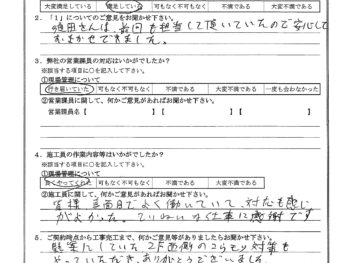 大変満足している 満足している 可もなく不可もなく 不満である 大変不満である
2．「1」についてのご意見をお聞かせ下さい。
さんは、前回も担当して頂いていたので安心して
おまかせできました。
3．弊社の営業課員の対応はいかがでしたか？
※該当する項目に○を記入して下さい。
①現場管理について
行き届いていた 可もなく不可もなく 不満である 大変不満である 一度も会わなかった
②営業課員に関して、何かご意見があればお聞かせ下さい。
営業課員名【 】【 】【 】
4．施工員の作業内容等はいかがでしたか？
※該当する項目に○を記入して下さい。
①現場管理について
良くやってくれた 可もなく不可もなく 不満である 大変不満である
②施工員に関して、何かご意見があればお聞かせ下さい。
皆様、真面目でよく働いていて、対応も感じ
がよかった。ていねいな仕事に感謝です
5．ご契約時点から工事完工まで、何かご意見等がありましたらお聞かせ下さい。
懸案にしていた2F西側のコウモリ対策も
やっていただき、ありがとうございました